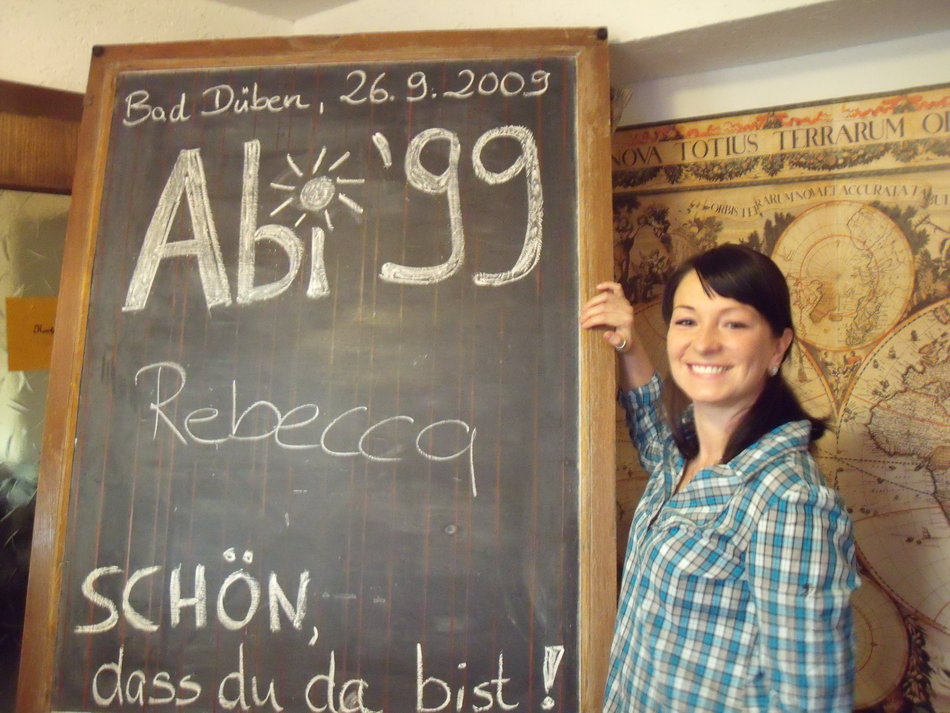 Bad Düben, 26.9.2009
Abi '99
Rebecca
SCHÖN,
dass du da bist!
NOVA TOTIUS TERRARUM
ORBIS TERRARUM NOVA ET ACCURATA